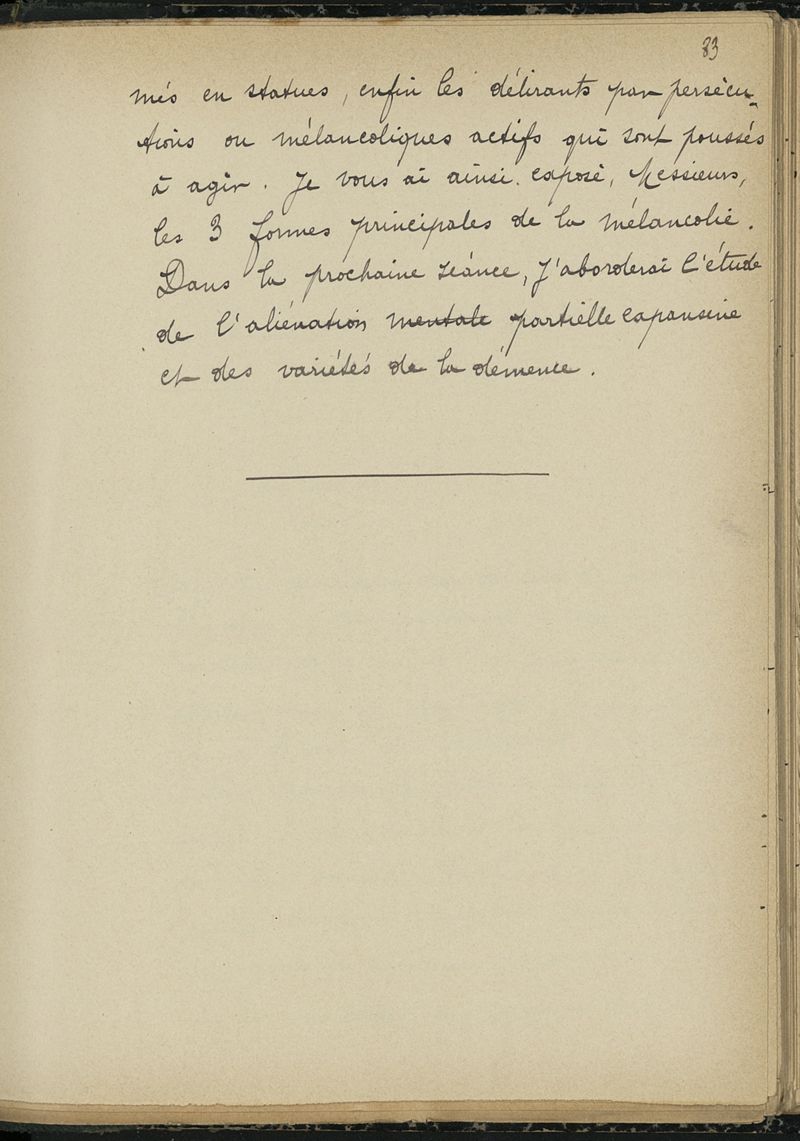 83
més en statues, enfin les délirants par persécu-
tions ou mélancoliques actifs qui sont poussés
à agir. Je vous ai ainsi exposé, Messieurs,
les 3 formes principales de la mélancolie.
Dans la prochaine séance, j'aborderai l'étude
de l'aliénation mentale partielle expansive
et des variétés de la démence.